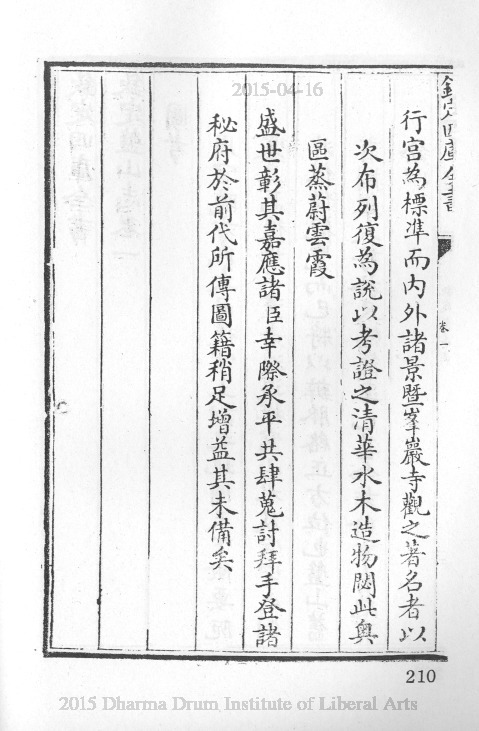 2015-04-16
欽定四庫全書
卷一
行宮為標準而内外諸景曁峯巖寺觀之著名者以
次布列復為説以考證之清華水木造物閟此奥
區蒸蔚雲霞
盛世彰其嘉應諸臣幸際承平共肆蒐討拜手登諸
秘府於前代所傳圖籍稍足增益其未備矣
210
2015 Dharma Drum Institute of Liberal Arts